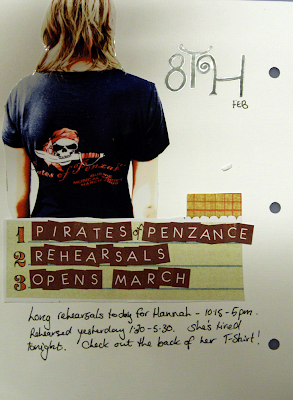 8TH
FEB
Pirates of Penzance
1 PIRATES of PENZANCE
2 REHEARSALS
3 OPENS MARCH
Long rehearsals today for Hannah - 10·15 - 5pm.
Rehearsed yesterday 1·30 - 5.30. She's tired
tonight. Check out the back of her T-Shirt!